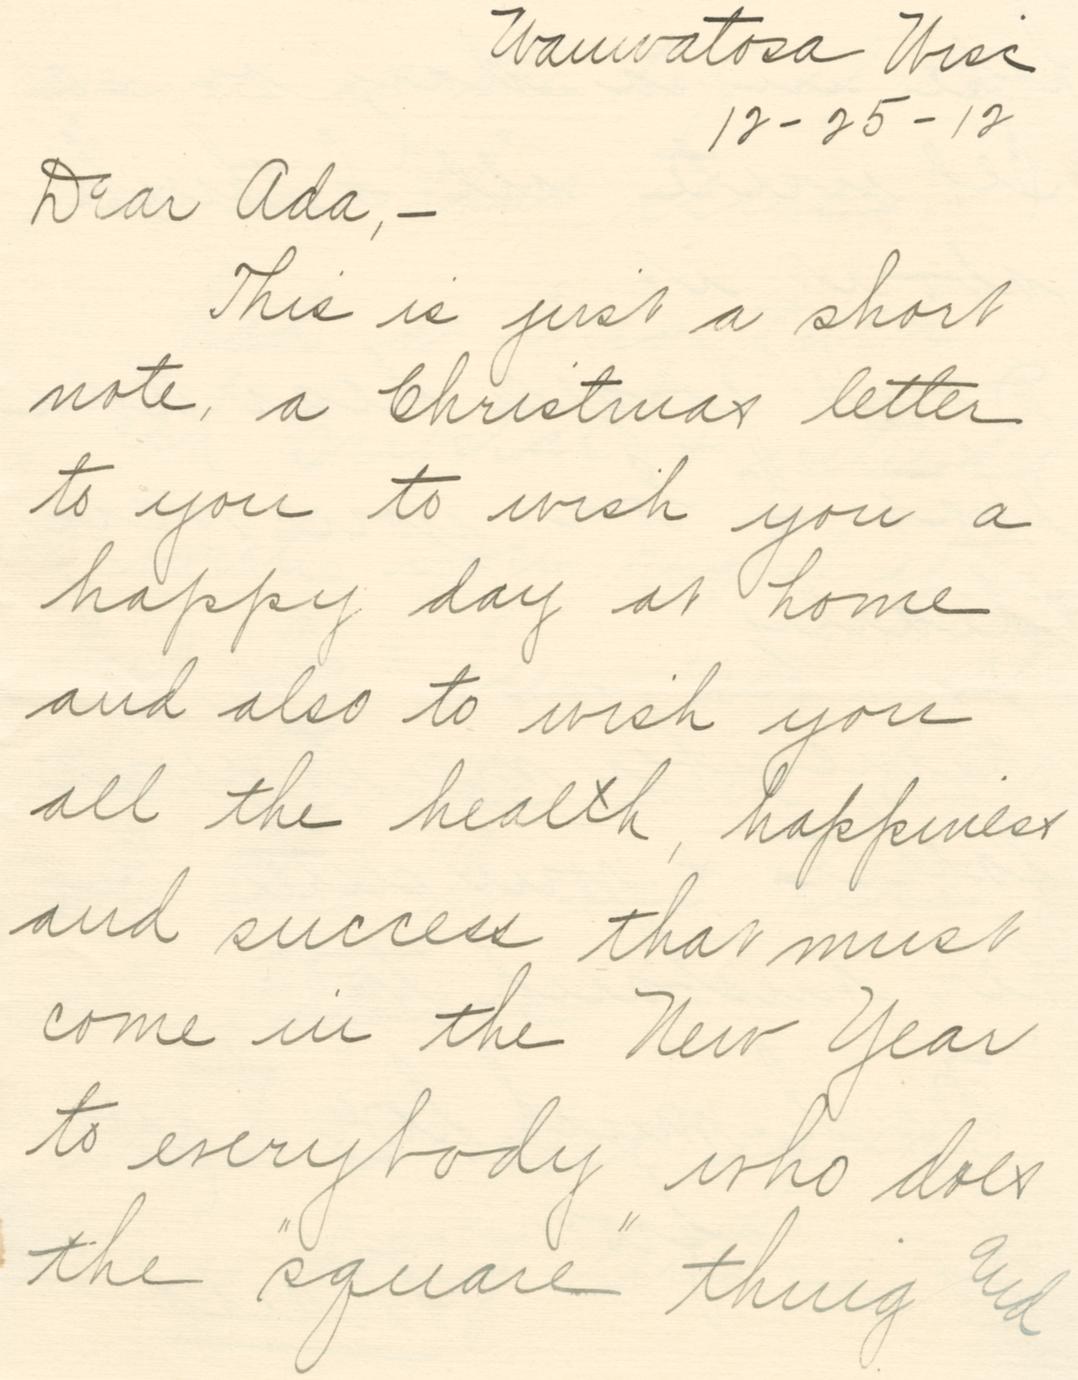 Wauwatosa Wisc
12-25-12
Dear Ada,-
This is just a short
note, a Christmas letter
to you to wish you a
happy day at home
and also to wish you
all the health, happiness
and success that must
come in the New Year
to everybody who does
the "square" thing and